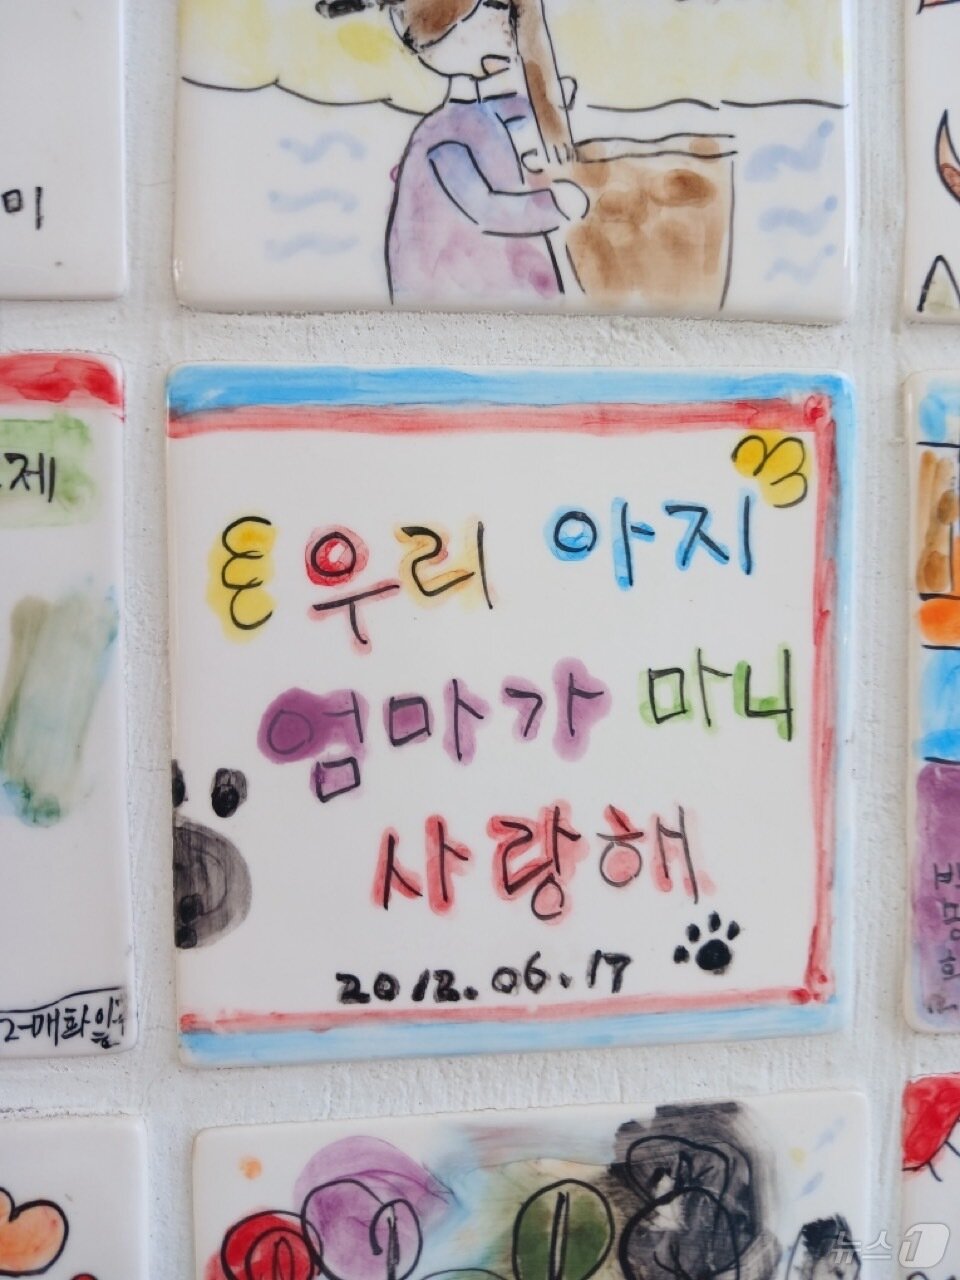 미
제
우리 아지
엄마가 마니
사랑해
2012.06.17
뉴스1